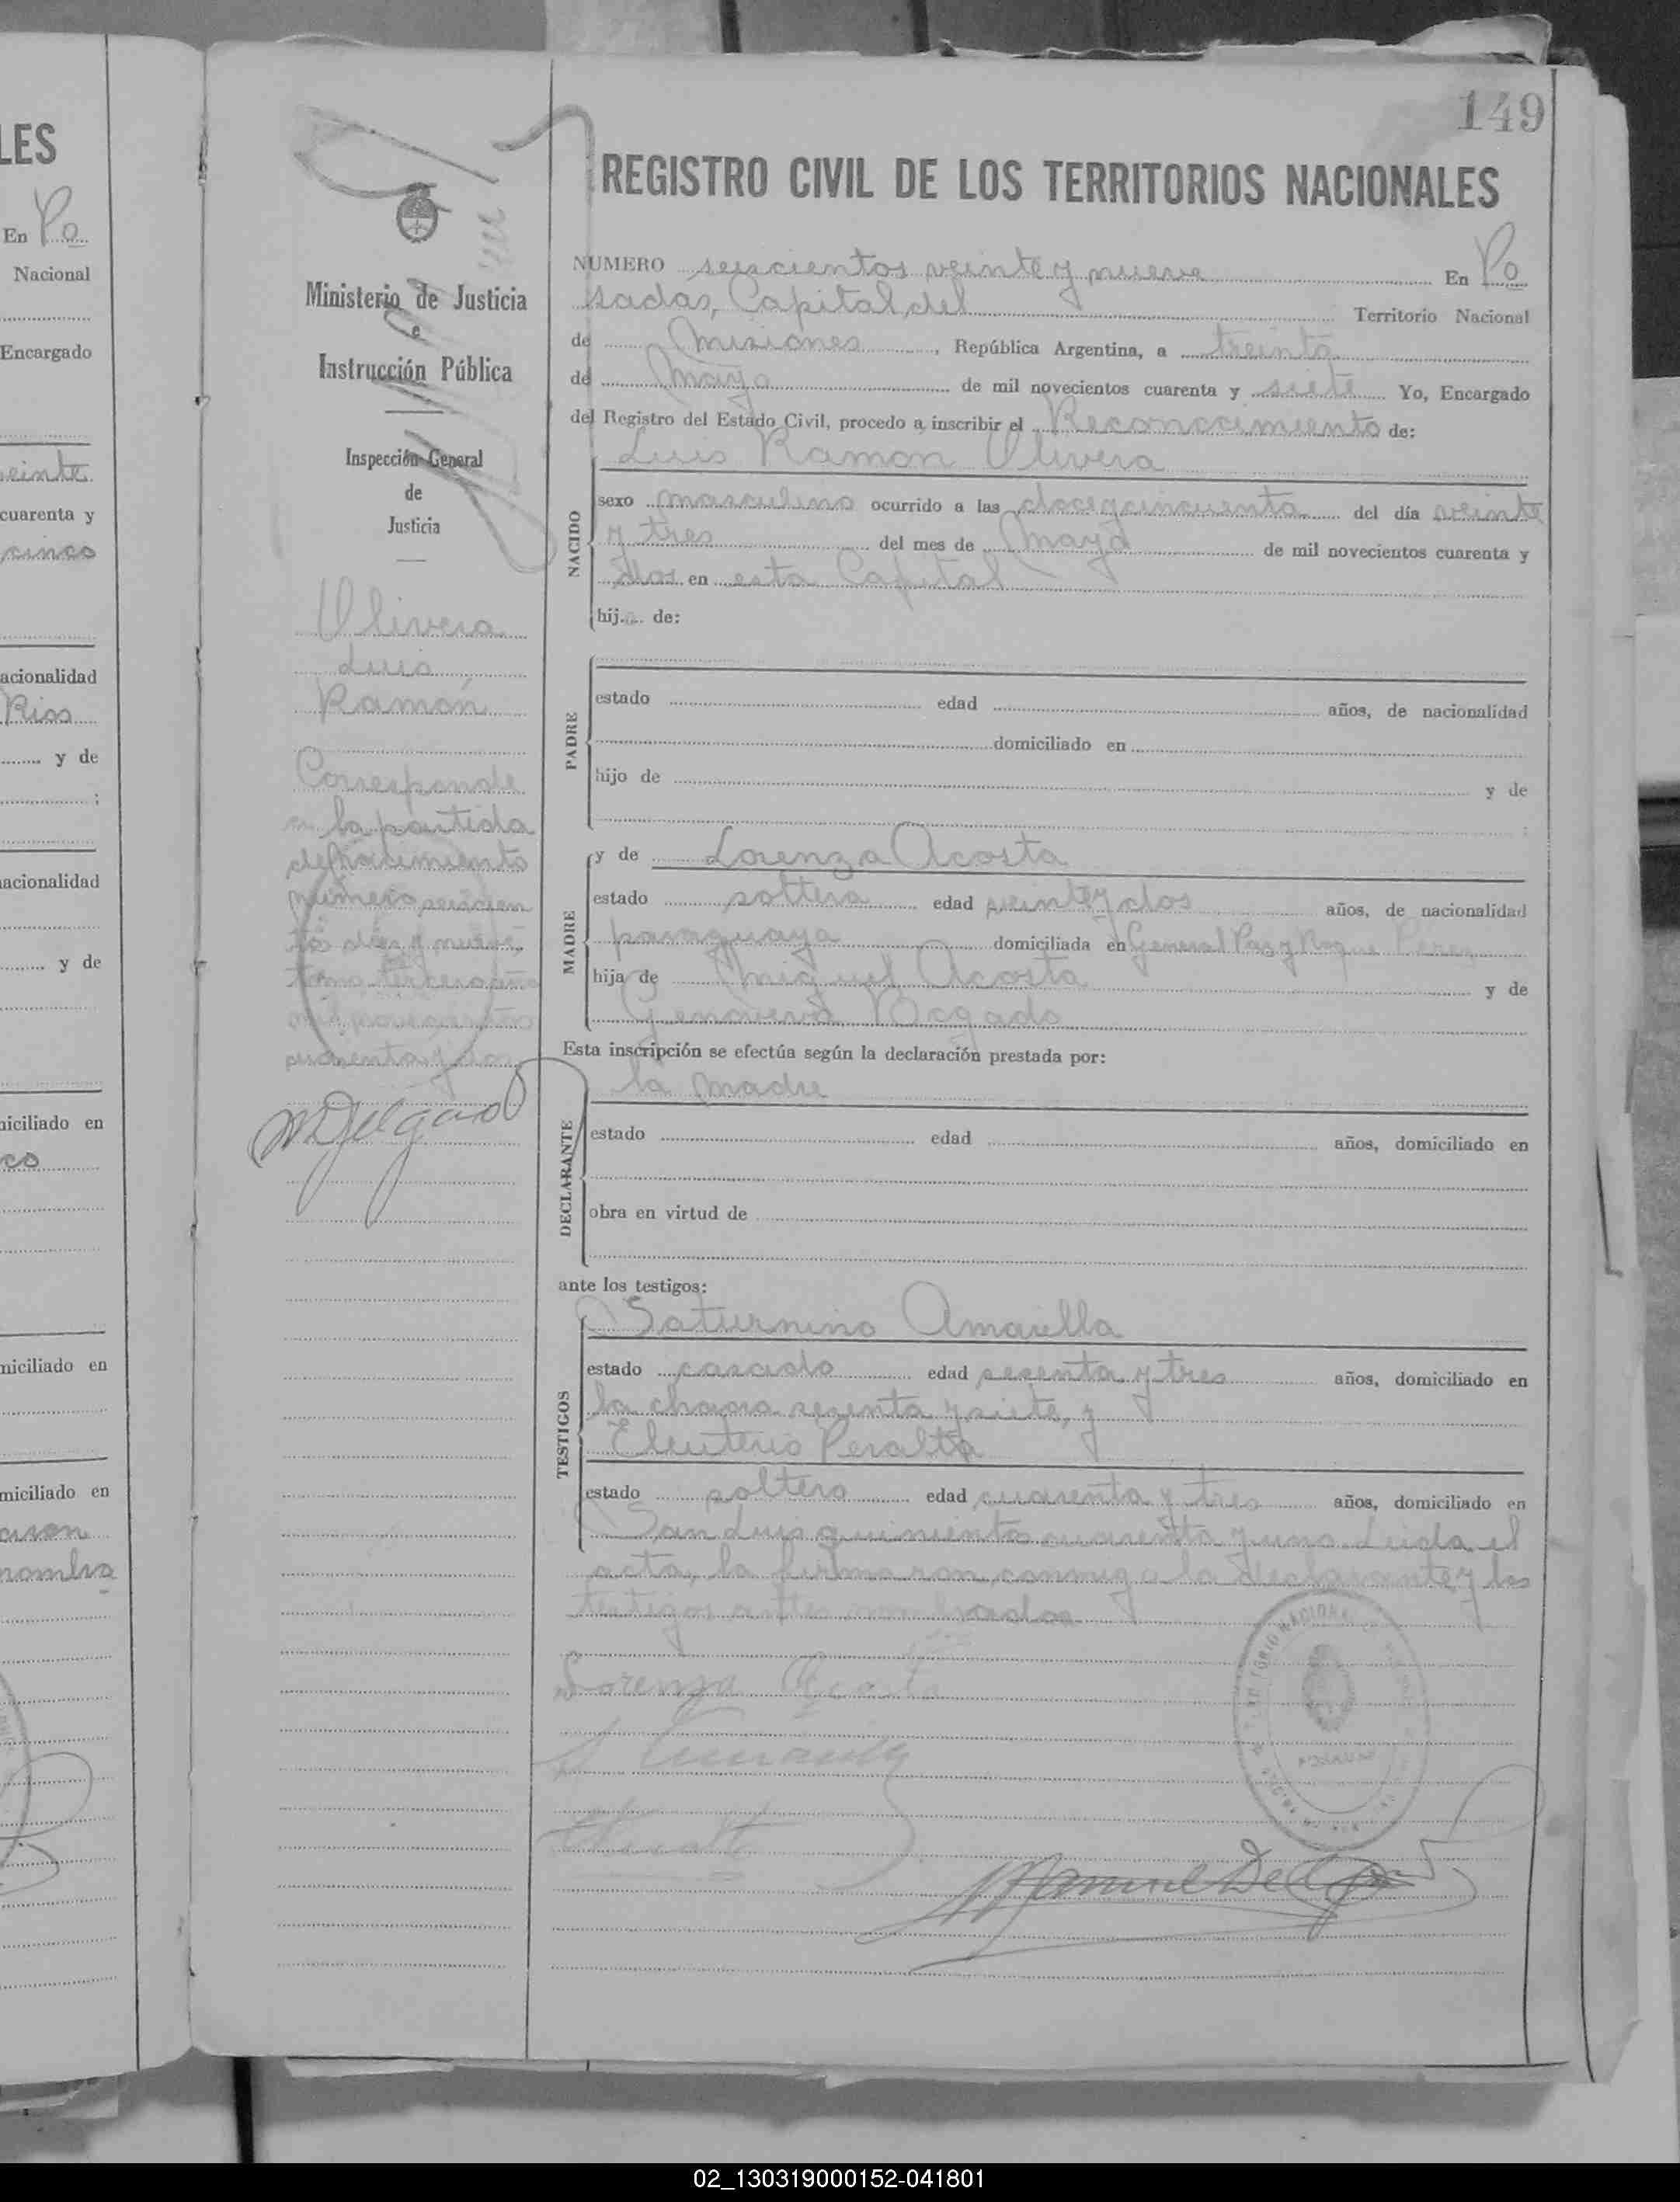 LES
En Po
Nacional
Encargado
veinte
cuarenta y
cinco
nacionalidad
Rios
y de
;
nacionalidad
y de
miciliado en
co
miciliado en
miciliado en
nombra
149
Ministerio de Justicia
e
Instrucción Pública
Inspección General
de
Justicia
Olivera
Luis
Ramón
Corresponde
a la partida
de nacimiento
número seiscien
tos diez y nueve,
tomo tercero año
mil novecientos
cuarenta y dos
MDelgado
REGISTRO CIVIL DE LOS TERRITORIOS NACIONALES
NUMERO seiscientos veinte y nueve En Po
sadas, Capital del Territorio Nacional
de Misiones, República Argentina, a treinta
de Mayo de mil novecientos cuarenta y siete Yo, Encargado
del Registro del Estado Civil, procedo a inscribir el Reconocimiento de:
Luis Ramón Olivera
NACIDO
sexo masculino ocurrido a las doce y cincuenta del día veinte
y tres del mes de Mayo de mil novecientos cuarenta y
dos en esta Capital
hijo de:
PADRE
estado edad años, de nacionalidad
domiciliado en
hijo de y de
;
MADRE
y de Lorenza Acosta
estado soltera edad veinte y dos años, de nacionalidad
paraguaya domiciliada en General Paz y Roque Perez
hija de Miguel Acosta y de
Genoveva Bogado
Esta inscripción se efectúa según la declaración prestada por:
la madre
DECLARANTE
estado edad años, domiciliado en
obra en virtud de
ante los testigos:
TESTIGOS
Saturnino Amarilla
estado casado edad sesenta y tres años, domiciliado en
la chacra sesenta y siete, y
Eleuterio Peralta
estado soltero edad cuarenta y tres años, domiciliado en
San Luis quinientos cuarenta y uno. Leida el
acta, la firmaron conmigo la declarante y los
testigos antes nombrados
Lorenza Acosta
Manuel Delgado
02_130319000152-041801